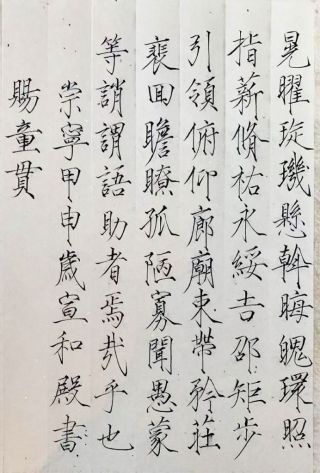 晃曜琁璣懸斡晦魄環照
指薪脩祜永綏吉邵矩步
引領俯仰廊廟束帶矜莊
裵回瞻瞭孤陋寡聞愚蒙
等誚謂語助者焉哉乎也
崇寧甲申歲宣和殿書
賜童貫